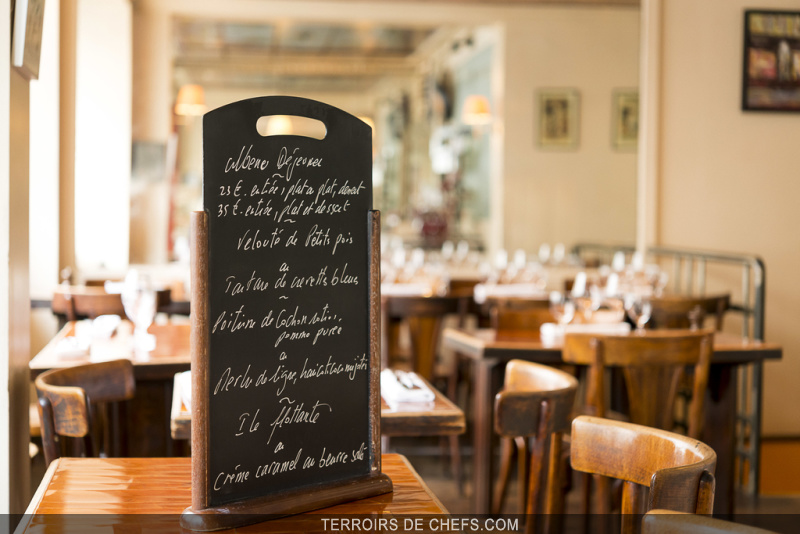 Déjeuner
23 €. entrée, plat ou plat, dessert
35 €. entrée, plat et dessert
Velouté de Petits pois
ou
Tartare de crevettes bleues
Poitrine de Cochon
pomme purée
ou
de ligne, haricots
Ile flottante
ou
Crème caramel au beurre salé
TERROIRS DE CHEFS.COM